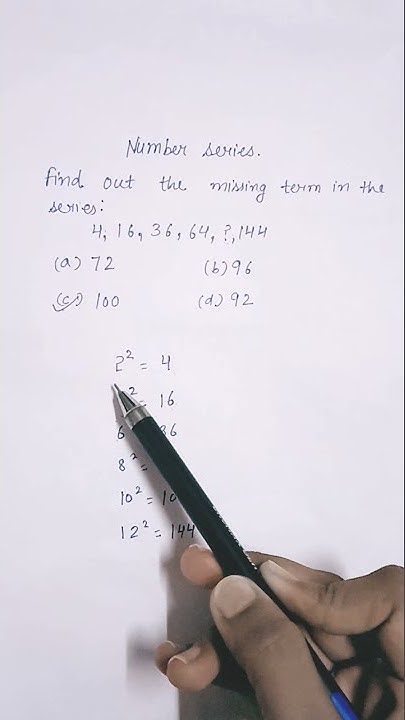 Number series.
Find out the missing term in the
series:
4, 16, 36, 64, ?, 144
(a) 72 (b) 96
(c) 100 (d) 92
2² = 4
² = 16
6 36
8² =
10² = 10
12² = 144